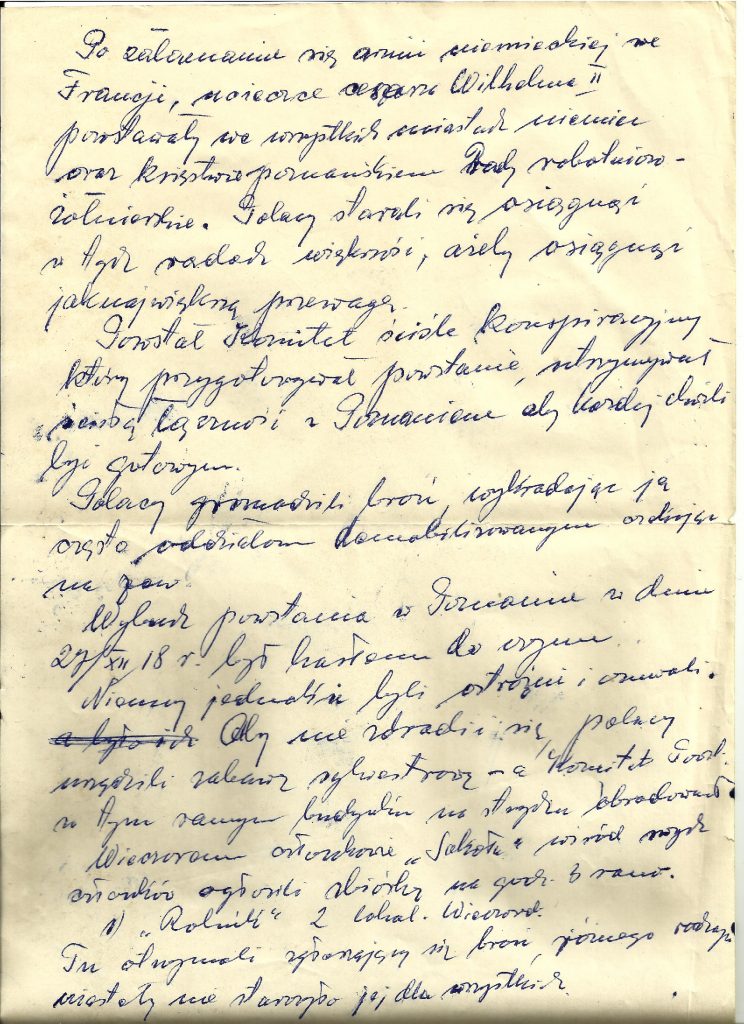 Po załamaniu się armii niemieckiej we
Francji, ucieczce cesarza Wilhelma II
powstawały we wszystkich miastach niemiec
oraz księstwie poznańskiem Rady robotniczo-
żołnierskie. Polacy starali się osiągnąć
w tych radach większość, ażeby osiągnąć
jaknajwiększą przewagę.
Powstał Komitet ściśle konspiracyjny
który przygotowywał powstanie, utrzymywał
ścisłą łączność z Poznaniem aby każdej chwili
być gotowym.
Polacy gromadzili broń, wykradając ją
często oddziałom demobilizowanym czekając
na
Wybuch powstania w Poznaniu w dniu
27/XII 18 r. był hasłem do czynu.
Niemcy jednakże byli ostrożni i czuwali.
Aby nie zdradzić się, polacy
urządzili zabawę sylwestrową – a Komitet Powst.
w tym samym budynku na strychu obradował.
Wieczorem członkowie „Sokoła" wśród swych
członków ogłosili zbiórkę na godz. 6 rano.
1) „Rolnik" 2 lokal.
Tu otrzymali zgłaszający się broń, różnego rodzaju
niestety nie starczyło jej dla wszystkich.